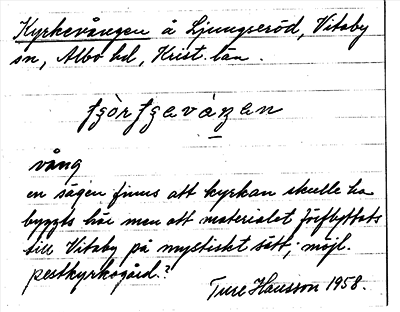 Kyrkevången å Ljungseröd, Vitaby
sn, Albo hd, Krist. län.
vång
en sägen finns att kyrkan skulle ha
byggts här men att materialet förflyttats
till Vitaby på mystiskt sätt, möjl.
pestkyrkogård.?
Ture Hansson 1958.